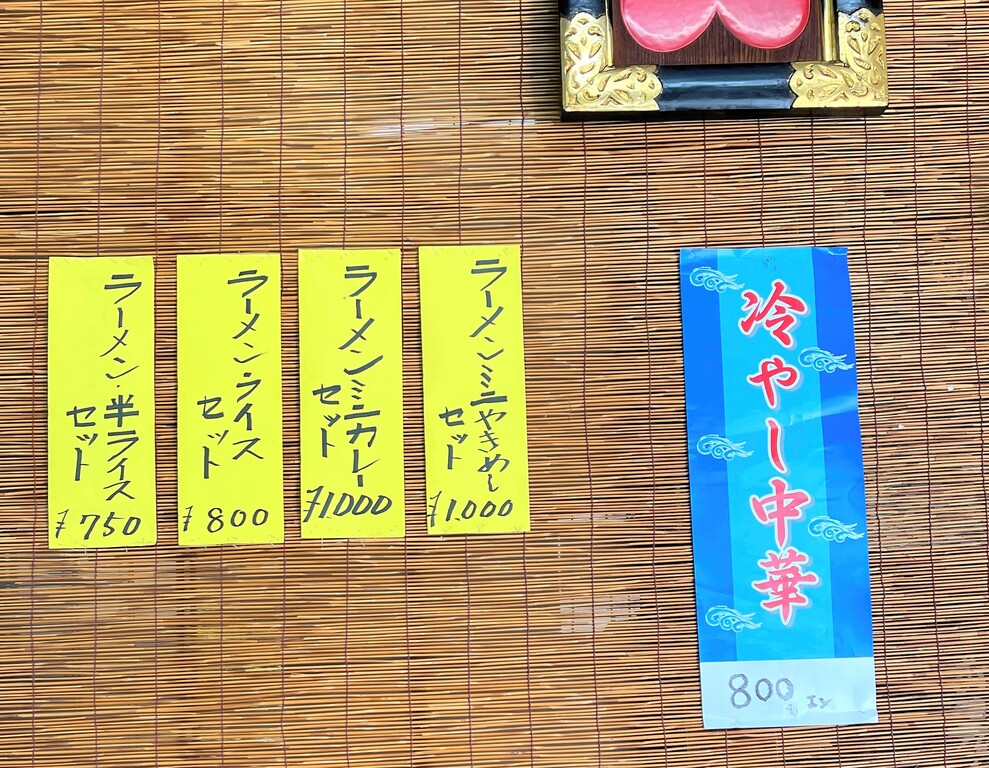 ラーメン・半ライス
セット
¥750
ラーメン・ライス
セット
¥800
ラーメンミニカレー
セット
¥1000
ラーメンミニやきめし
セット
¥1.000
冷やし中華
800エン